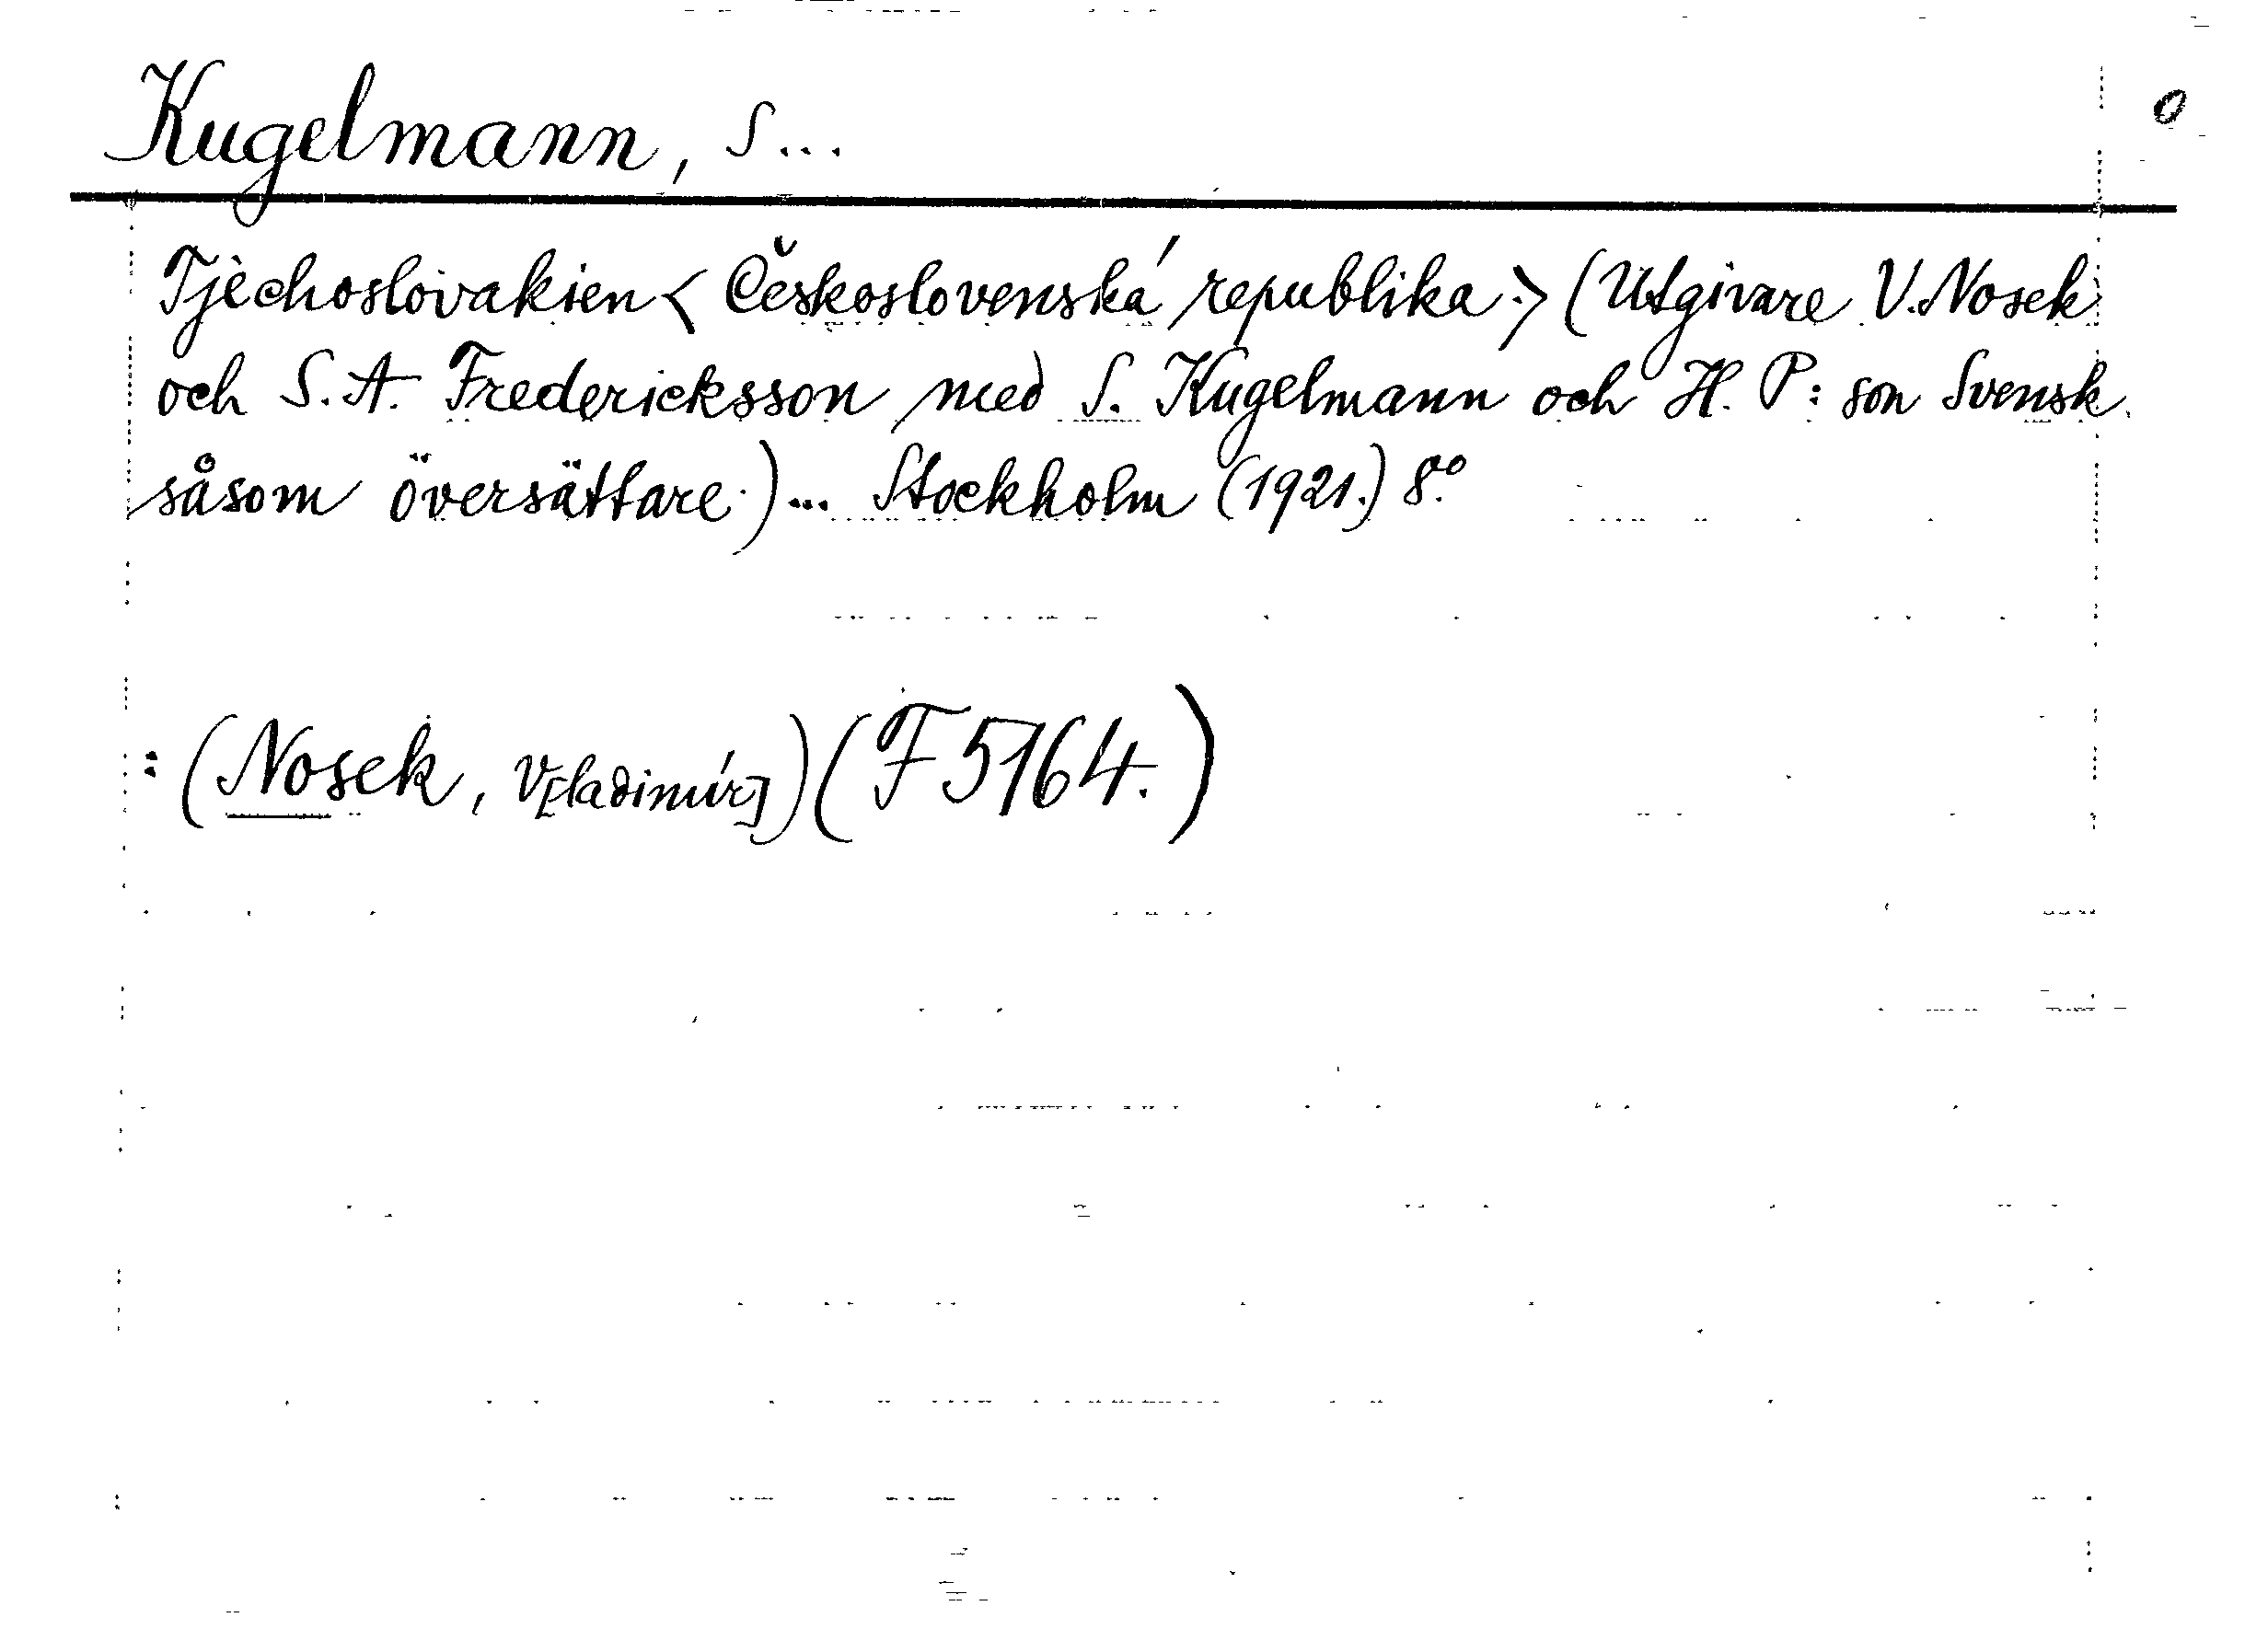 Kugelmann, S...
0
Tjèchoslovakien < Československá republika.> (Utgivare V. Nosek
och S. A. Fredericksson med S. Kugelmann och H. P:son Svensk
såsom översättare.)... Stockholm (1921.) 8.º
:(Nosek, V[ladimír]) (F 5164.)